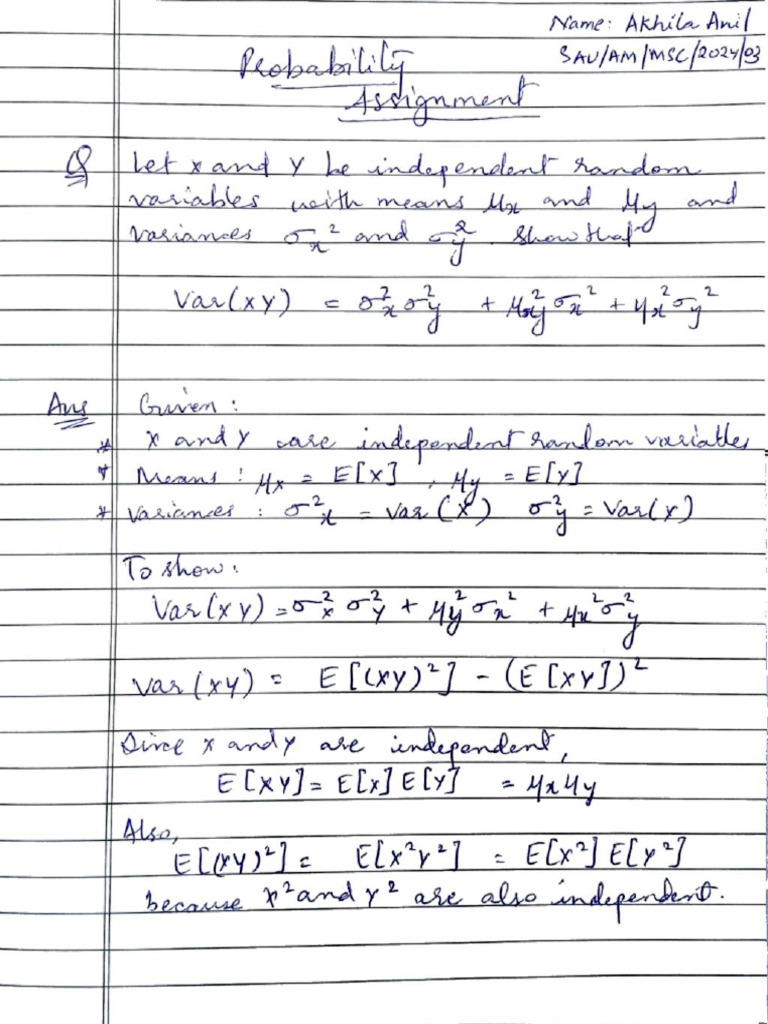 Name: Akhila Anil
SAU/AM/MSC/2024/03
Probability
Assignment
Q Let X and Y be independent random
variables with means μx and μy and
variances σx² and σy². Show that
Var(XY) = σx²σy² + μy²σx² + μx²σy²
Ans Given:
* X and Y are independent random variables
* Means: μx = E[X], μy = E[Y]
* Variances: σ²x = Var(X) σ²y = Var(Y)
To show:
Var(XY) = σx²σy² + μy²σx² + μx²σy²
Var(XY) = E[(XY)²] - (E[XY])²
Since X and Y are independent,
E[XY] = E[X]E[Y] = μxμy
Also,
E[(XY)²] = E[X²Y²] = E[X²]E[Y²]
because X² and Y² are also independent.